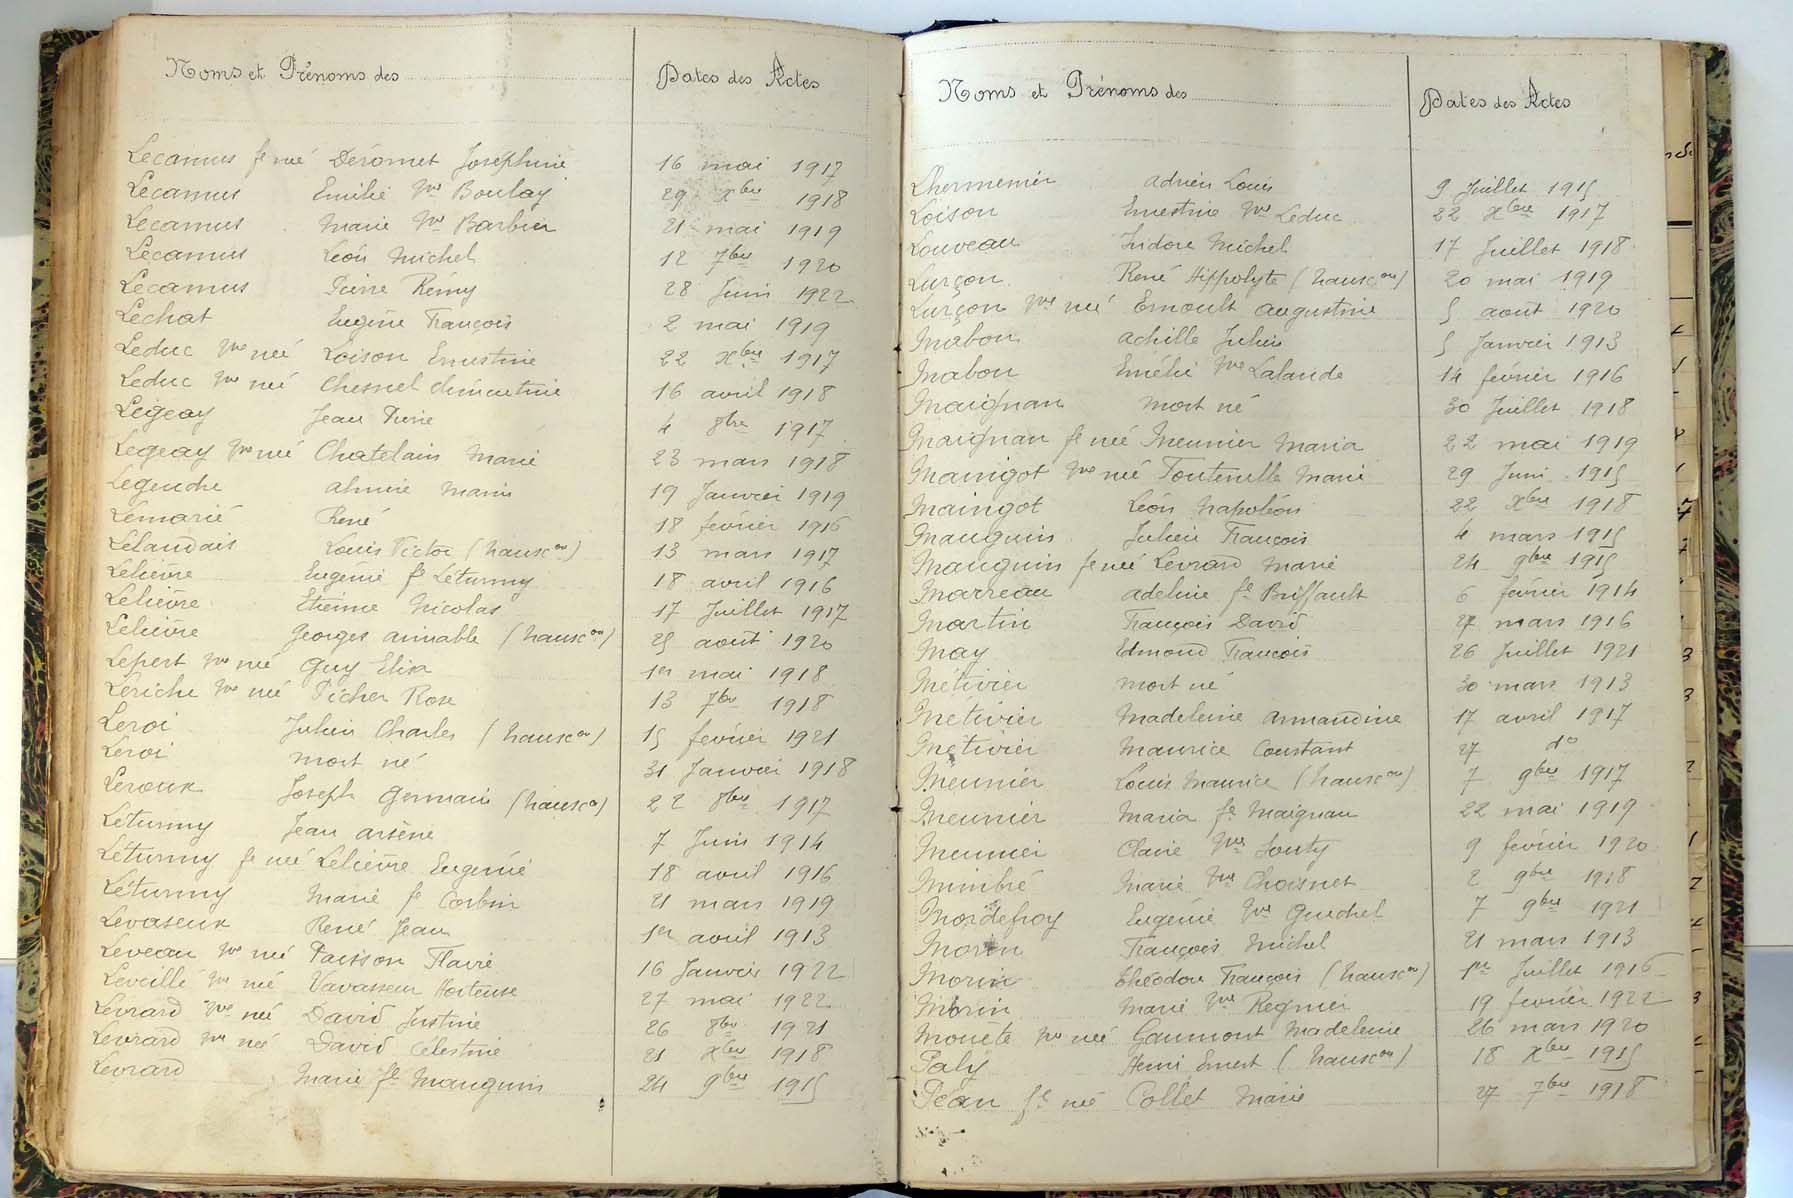 Noms et Prénoms des
Dates des Actes
Lecamus fe née Déromet Joséphine 16 mai 1917
Lecamus Emilie Vve Boulay 29 Xbre 1918
Lecamus Marie Vve Barbier 21 mai 1919
Lecamus Léon Michel 12 7bre 1920
Lecamus Pierre Rémy 28 Juin 1922
Lechat Eugène François 2 mai 1919
Leduc Vve née Loison Ernestine 22 Xbre 1917
Leduc Vve née Chesnel Clémentine 16 avril 1918
Legeay Jean Pierre 4 8bre 1917
Legeay Vve née Chatelain Marie 23 mars 1918
Legendre Marie 19 Janvier 1919
Lemarié René 18 février 1916
Lelandais Louis Victor (transcon) 13 mars 1917
Lelièvre Eugénie fe Léturmy 18 avril 1916
Lelièvre Etienne Nicolas 17 Juillet 1917
Lelièvre Georges aimable (transcon) 25 août 1920
Lepert Vve née Guy Elisa 1er mai 1918
Leriche Vve née Picher Rose 13 7bre 1918
Leroi Julien Charles (transcon) 15 février 1921
Leroi mort né 31 Janvier 1918
Leroux Joseph Germain (transcon) 22 8bre 1917
Léturmy Jean arsène 7 Juin 1914
Léturmy fe née Lelièvre Eugénie 18 avril 1916
Léturmy Marie fe Corbin 21 mars 1919
Levaseux René Jean 1er avril 1913
Leveau Vve née Paisson Flavie 16 Janvier 1922
Leveillé Vve née Vavasseur Hortense 27 mai 1922
Levrard Vve née David Justine 26 8bre 1921
Levrard Vve née David Célestine 21 Xbre 1918
Levrard Marie fe Mauguin 24 9bre 1915
Noms et Prénoms des
Dates des Actes
Lhermenier adrien Louis 9 Juillet 1915
Loison Ernestine Vve Leduc 22 Xbre 1917
Louveau Isidore Michel 17 Juillet 1918
Lurçon René Hippolyte (transcon) 20 mai 1919
Lurçon Vve née Ernoult augustine 5 août 1920
Mabon achille Julien 5 Janvier 1913
Mabon Emélie Vve Lalande 14 février 1916
Maignan mort né 30 Juillet 1918
Maignan fe née Meunier Maria 22 mai 1919
Maingot Vve née Fontenelle Marie 29 Juin 1915
Maingot Léon Napoléon 22 Xbre 1918
Mauguin Julien François 4 mars 1915
Mauguin fe née Levrard Marie 24 9bre 1915
Marreau adeline fe Briffault 6 février 1914
Martin François David 27 mars 1916
May Edmond François 26 Juillet 1921
Métivier mort né 30 mars 1913
Métivier Madeleine Armandine 17 avril 1917
Métivier Maurice Constant 27 do
Meunier Louis Maurice (transcon) 7 9bre 1917
Meunier Maria fe Maignan 22 mai 1919
Meunier Claire Vve Souty 9 février 1920
Mimbré Marie Vve Choisnet 2 9bre 1918
Mordefroy Eugénie Vve Guedul 7 9bre 1921
Morin François Michel 21 mars 1913
Morin Théodore François (transcon) 1er Juillet 1916
Morin Marie Vve Regnier 19 février 1922
Mouëte Vve née Gaumont Madeleine 26 mars 1920
Paly Henri Ernest (transcon) 18 Xbre 1915
Péan fe née Collet Marie 27 7bre 1918